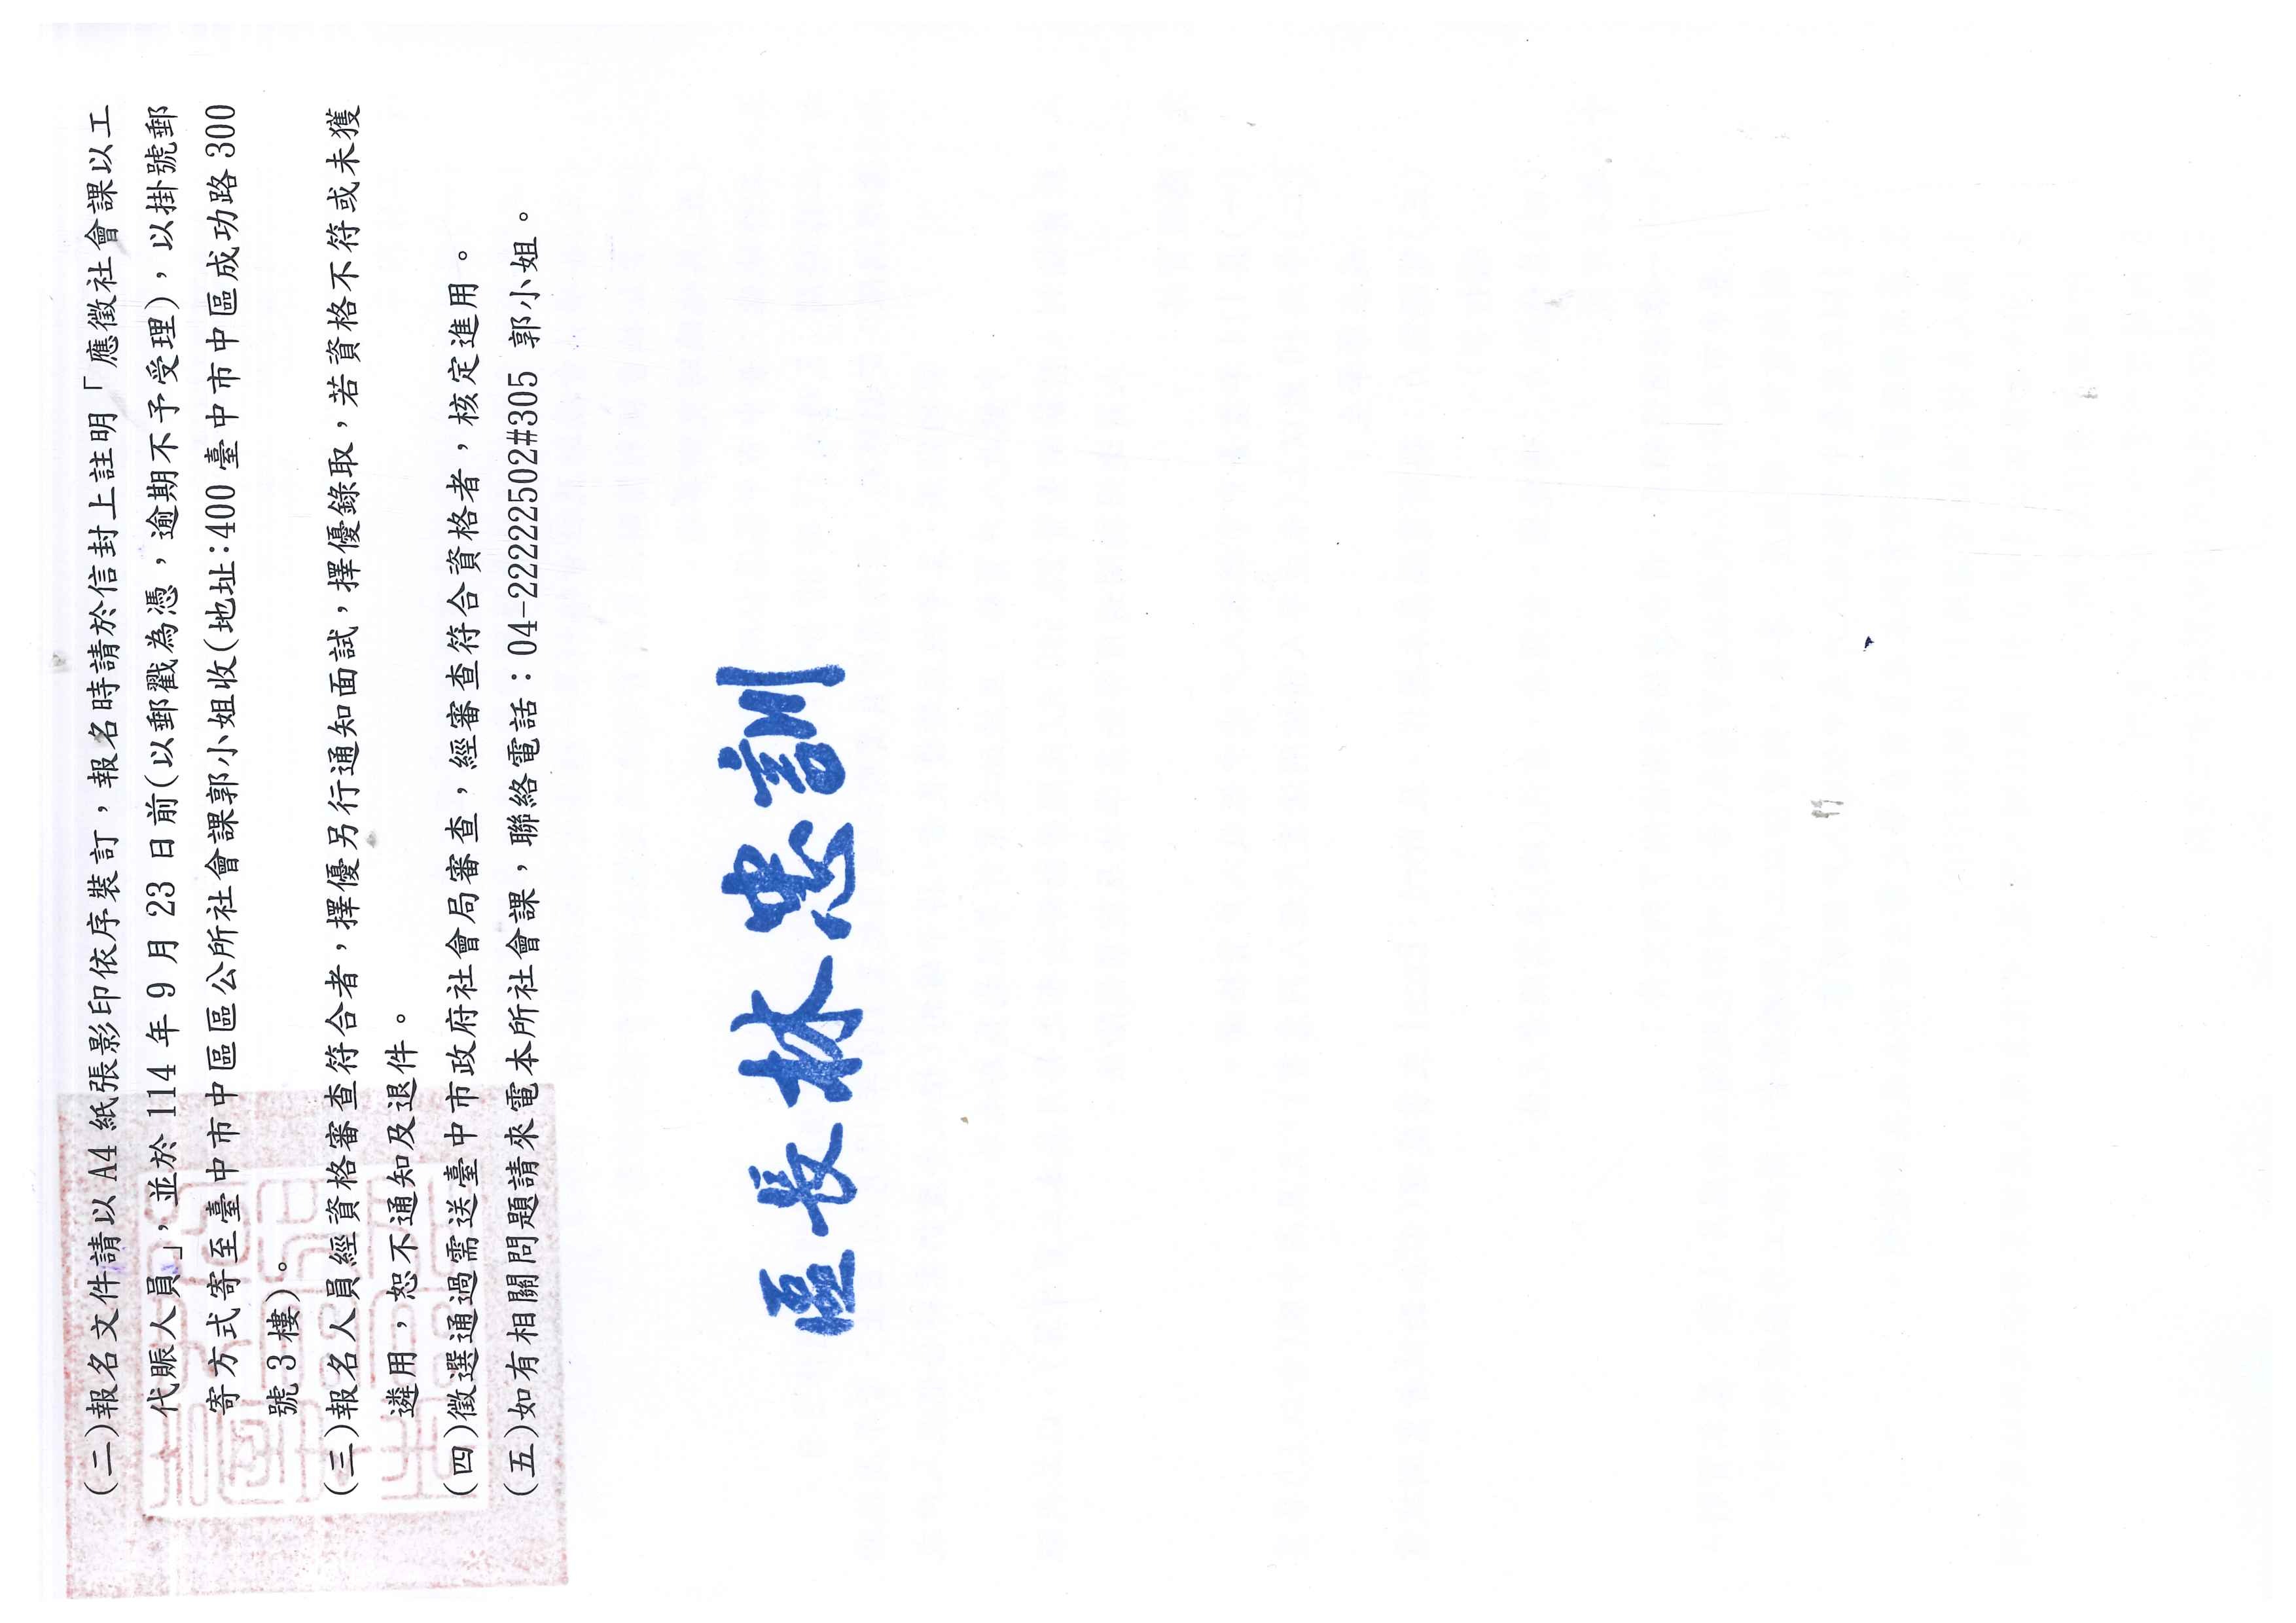 (二)報名文件請以 A4 紙張影印依序裝訂，報名時請於信封上註明「應徵社會課以工
代賑人員」，並於 114 年 9 月 23 日前(以郵戳為憑，逾期不予受理)，以掛號郵
寄方式寄至臺中市中區區公所社會課郭小姐收(地址:400 臺中市中區成功路 300
號 3 樓)。
(三)報名人員經資格審查符合者，擇優另行通知面試，擇優錄取，若資格不符或未獲
遴用，恕不通知及退件。
(四)徵選通過需送臺中市政府社會局審查，經審查符合資格者，核定進用。
(五)如有相關問題請來電本所社會課，聯絡電話：04-22222502#305 郭小姐。
區長林忠訓